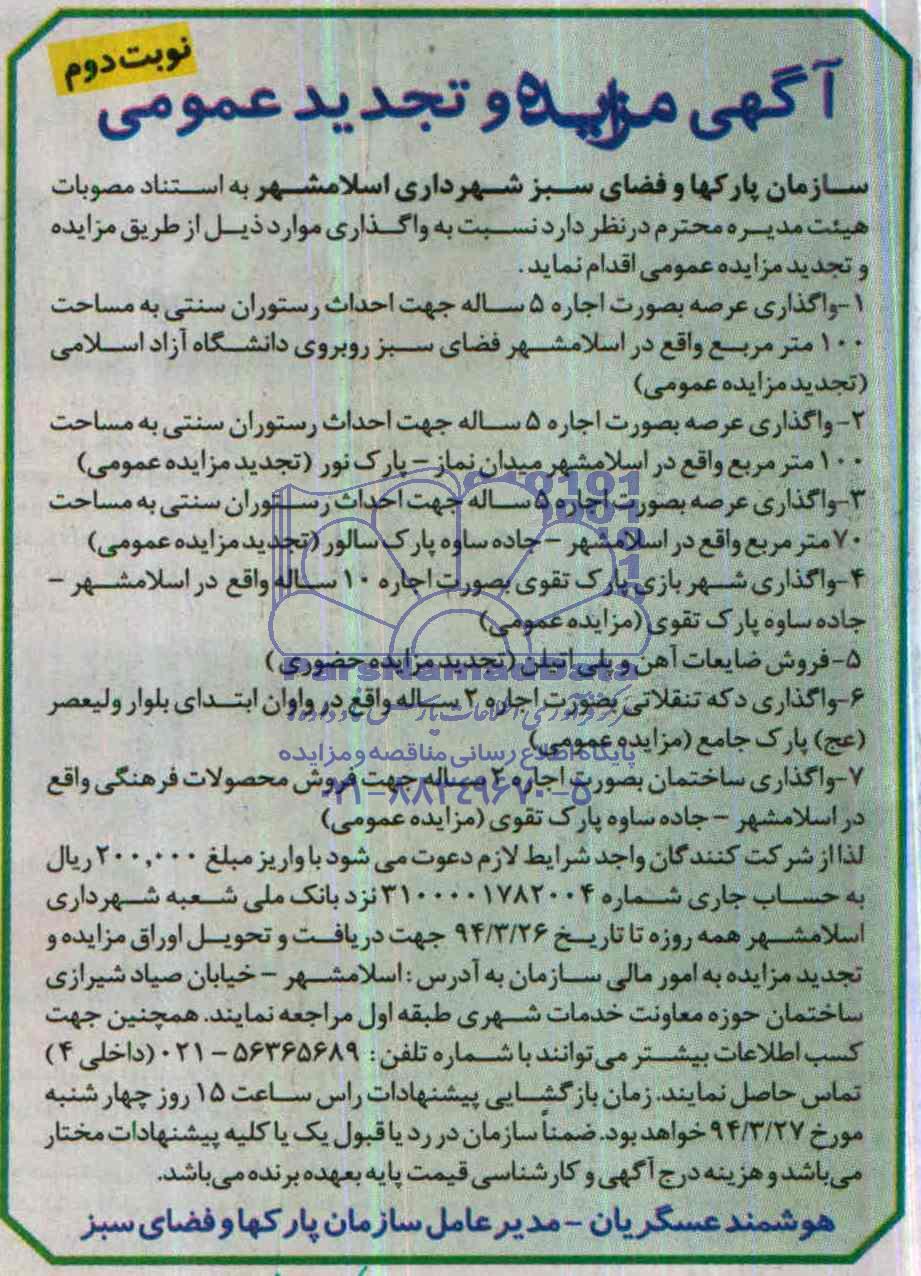 نوبت دوم
آگهی مزایده و تجدید عمومی
سازمان پارکها و فضای سبز شهرداری اسلامشهر به استناد مصوبات
هیئت مدیره محترم در نظر دارد نسبت به واگذاری موارد ذیل از طریق مزایده
و تجدید مزایده عمومی اقدام نماید.
۱-واگذاری عرصه بصورت اجاره ۵ ساله جهت احداث رستوران سنتی به مساحت
۱۰۰ متر مربع واقع در اسلامشهر فضای سبز روبروی دانشگاه آزاد اسلامی
(تجدید مزایده عمومی)
۲-واگذاری عرصه بصورت اجاره ۵ ساله جهت احداث رستوران سنتی به مساحت
۱۰۰ متر مربع واقع در اسلامشهر میدان نماز – پارک نور (تجدید مزایده عمومی)
۳-واگذاری عرصه بصورت اجاره ۵ ساله جهت احداث رستوران سنتی به مساحت
۷۰ متر مربع واقع در اسلامشهر – جاده ساوه پارک سالور (تجدید مزایده عمومی)
۴-واگذاری شهر بازی پارک تقوی بصورت اجاره ۱۰ ساله واقع در اسلامشهر –
جاده ساوه پارک تقوی (مزایده عمومی)
۵-فروش ضایعات آهن و پلی اتیلن (تجدید مزایده حضوری)
ParsNamadData
۶-واگذاری دکه تنقلاتی بصورت اجاره ۲ ساله واقع در واوان ابتدای بلوار ولیعصر
(عج) پارک جامع (مزایده عمومی)
پایگاه اطلاع رسانی مناقصه و مزایده
۷-واگذاری ساختمان بصورت اجاره ۲ ساله جهت فروش محصولات فرهنگی واقع
۰۲۱-۸۸۳۴۹۶۷۰-۵
در اسلامشهر – جاده ساوه پارک تقوی (مزایده عمومی)
لذا از شرکت کنندگان واجد شرایط لازم دعوت می شود با واریز مبلغ ۲۰۰,۰۰۰ ریال
به حساب جاری شماره ۳۱۰۰۰۰۱۷۸۲۰۰۴ نزد بانک ملی شعبه شهرداری
اسلامشهر همه روزه تا تاریخ ۹۴/۳/۲۶ جهت دریافت و تحویل اوراق مزایده و
تجدید مزایده به امور مالی سازمان به آدرس: اسلامشهر – خیابان صیاد شیرازی
ساختمان حوزه معاونت خدمات شهری طبقه اول مراجعه نمایند. همچنین جهت
کسب اطلاعات بیشتر می توانند با شماره تلفن: ۵۶۳۶۵۶۸۹ – ۰۲۱ (داخلی ۴)
تماس حاصل نمایند. زمان بازگشایی پیشنهادات راس ساعت ۱۵ روز چهار شنبه
مورخ ۹۴/۳/۲۷ خواهد بود. ضمناً سازمان در رد یا قبول یک یا کلیه پیشنهادات مختار
می باشد و هزینه درج آگهی و کارشناسی قیمت پایه بعهده برنده می باشد.
هوشمند عسگریان – مدیر عامل سازمان پارکها و فضای سبز